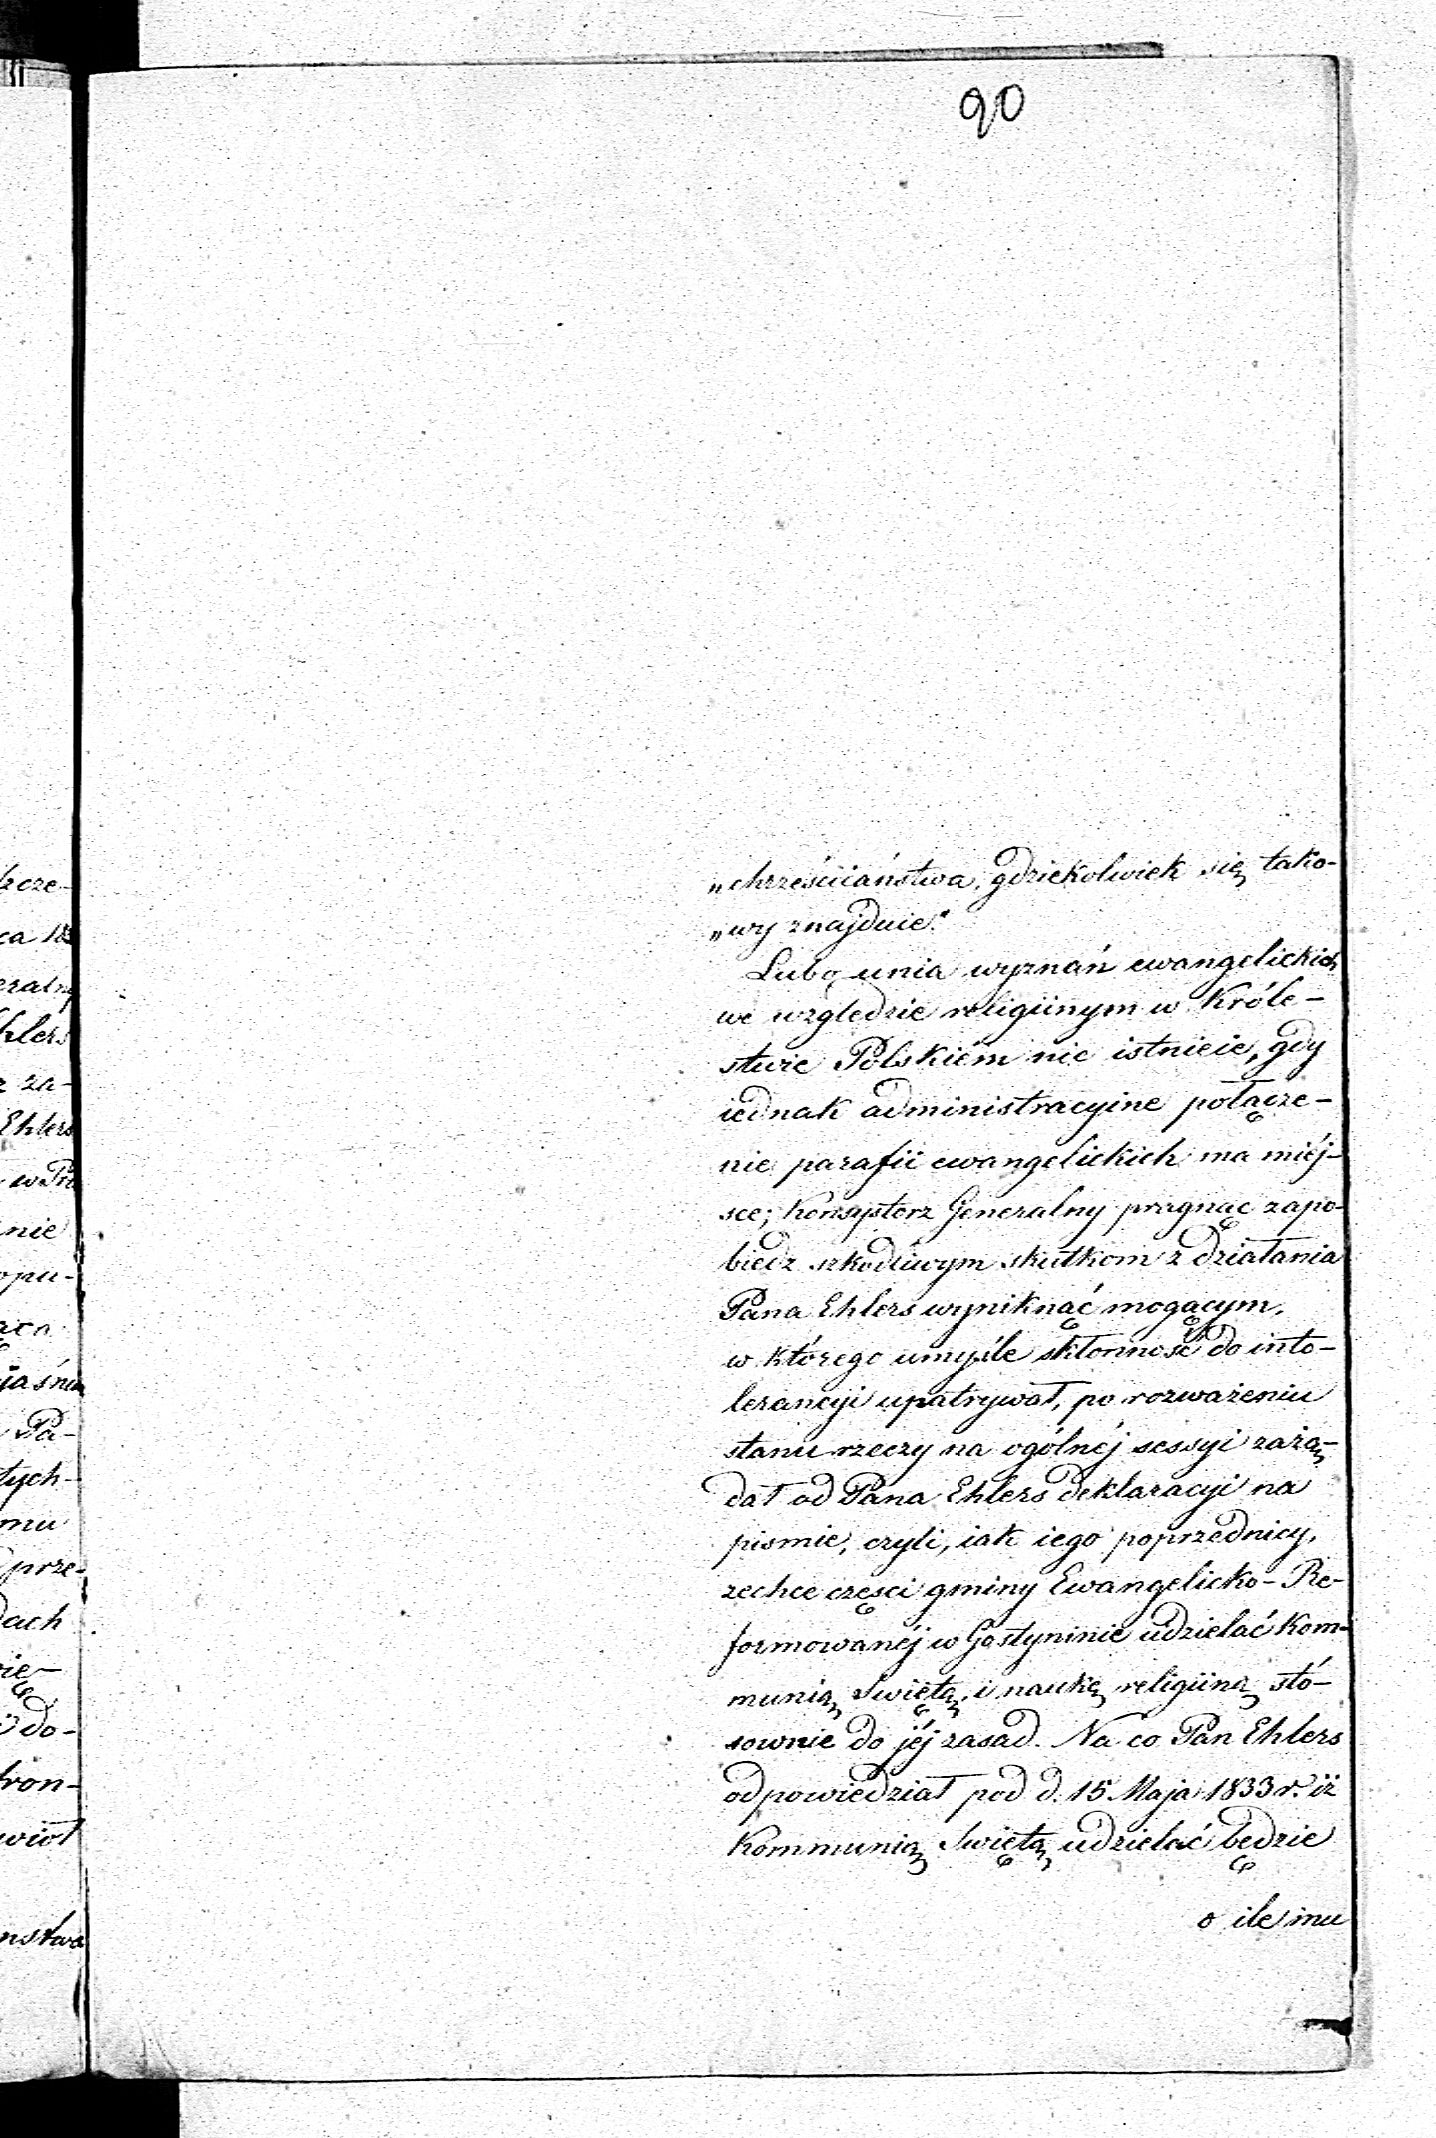 90
„chrześciiaństwa, gdziekolwiek się tako-
„wy znajduie."
Lubo unia wyznań ewangelickich
we względzie religiinym w Króle-
stwie Polskiém nie istnieie, gdy
iednak administracyine połącze-
nie parafii ewangelickich ma miéj-
sce; Konsystorz Generalny pragnąc zapo-
biedz szkodliwym skutkom z działania
Pana Ehlers wyniknąć mogącym,
w którego umyśle skłonność do into-
lerancyi upatrywał, po rozważeniu
stanu rzeczy na ogólnéj sessyi zażą-
dał od Pana Ehlers deklaracyi na
pismie, czyli, iak iego poprzednicy,
zechce części gminy Ewangelicko-Re-
formowanéj w Gostyninie udzielać Kom-
munią Swiętą i naukę religiiną stó-
sownie do jéj zasad. Na co Pan Ehlers
odpowiedział pod d. 15 Maja 1833 r. iż
Kommunią Swiętą udzielać będzie
o ile mu